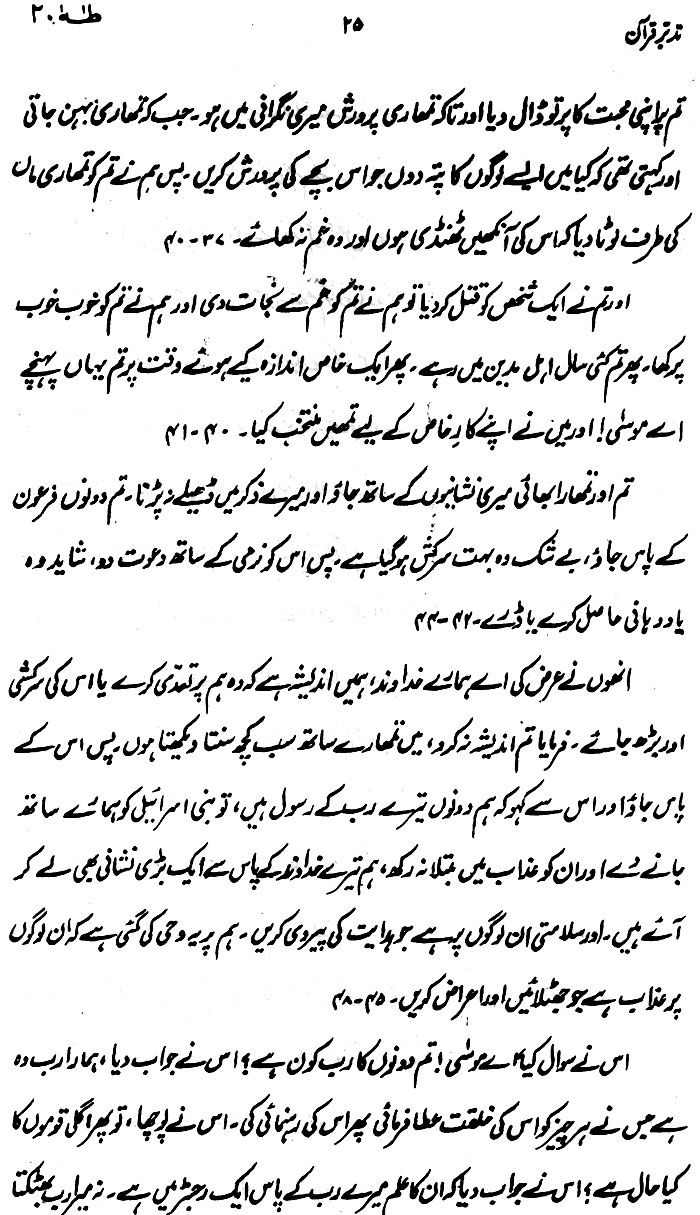 تدبر قرآن ۲۵ طٰہٰ ۲۰
تم پر اپنی محبت کا پرتو ڈال دیا اور تاکہ تمھاری پرورش میری نگرانی میں ہو۔ جب کہ تمھاری بہن جاتی
اور کہتی تھی کہ کیا میں ایسے لوگوں کا پتہ دوں جو اس بچے کی پرورش کریں۔ پس ہم نے تم کو تمھاری ماں
کی طرف لوٹا دیا کہ اس کی آنکھیں ٹھنڈی ہوں اور وہ غم نہ کھائے۔ ۳۷-۴۰
اور تم نے ایک شخص کو قتل کر دیا تو ہم نے تم کو غم سے نجات دی اور ہم نے تم کو خوب خوب
پرکھا۔ پھر تم کئی سال اہل مدین میں رہے۔ پھر ایک خاص اندازہ کیے ہوئے وقت پر تم یہاں پہنچے
اے موسٰی! اور میں نے اپنے کارِ خاص کے لیے تمھیں منتخب کیا۔ ۴۰-۴۱
تم اور تمھارا بھائی میری نشانیوں کے ساتھ جاؤ اور میرے ذکر میں ڈھیلے نہ پڑنا۔ تم دونوں فرعون
کے پاس جاؤ، بے شک وہ بہت سرکش ہو گیا ہے۔ پس اس کو نرمی کے ساتھ دعوت دو، شاید وہ
یاد دہانی حاصل کرے یا ڈرے۔ ۴۲-۴۴
انھوں نے عرض کی اے ہمارے خداوند، ہمیں اندیشہ ہے کہ وہ ہم پر تعدّی کرے یا اس کی سرکشی
اور بڑھ جائے۔ فرمایا تم اندیشہ نہ کرو، میں تمھارے ساتھ سب کچھ سنتا دیکھتا ہوں۔ پس اس کے
پاس جاؤ اور اس سے کہو کہ ہم دونوں تیرے رب کے رسول ہیں، تو بنی اسرائیل کو ہمارے ساتھ
جانے دے اور ان کو عذاب میں مبتلا نہ رکھ، ہم تیرے خداوند کے پاس سے ایک بڑی نشانی بھی لے کر
آئے ہیں۔ اور سلامتی ان لوگوں پر ہے جو ہدایت کی پیروی کریں۔ ہم پر یہ وحی کی گئی ہے کہ ان لوگوں
پر عذاب ہے جو جھٹلائیں اور اعراض کریں۔ ۴۵-۴۸
اس نے سوال کیا اے موسٰی! تم دونوں کا رب کون ہے؟ اس نے جواب دیا، ہمارا رب وہ
ہے جس نے ہر چیز کو اس کی خلقت عطا فرمائی پھر اس کی رہنمائی کی۔ اس نے پوچھا، تو پھر اگلی قوموں کا
کیا حال ہے؟ اس نے جواب دیا کہ ان کا علم میرے رب کے پاس ایک رجسٹر میں ہے۔ نہ میرا رب بھٹکتا